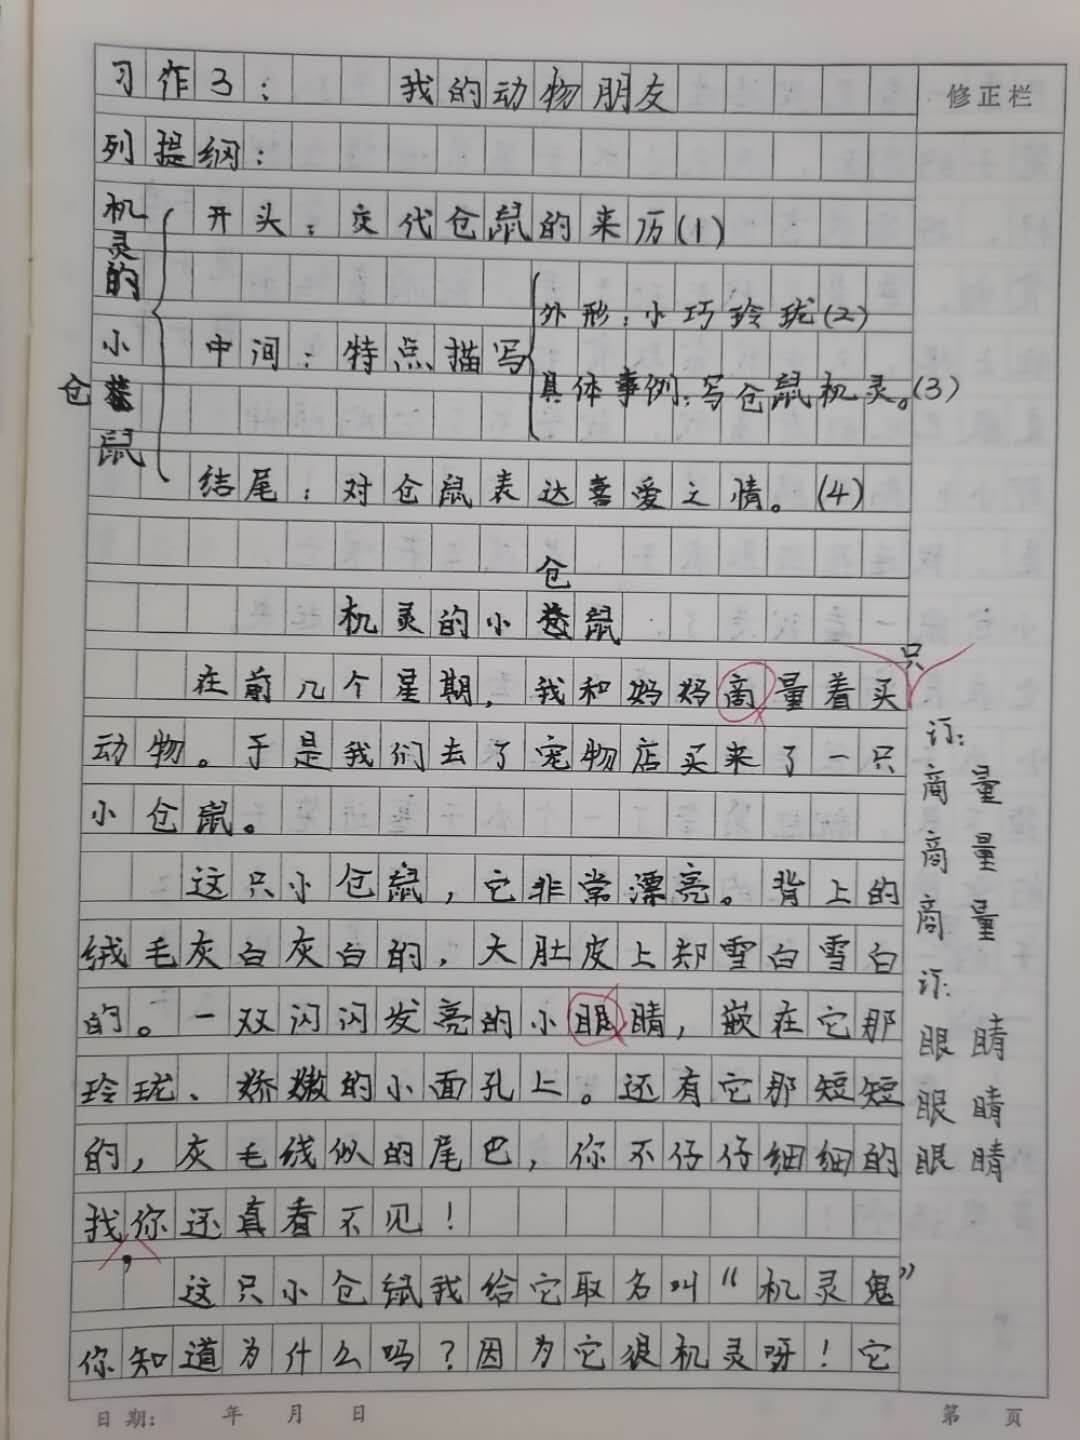 习作3： 我的动物朋友
修正栏
列提纲：
机灵的小仓鼠
开头：交代仓鼠的来历(1)
中间：特点描写
外形：小巧玲珑(2)
具体事例：写仓鼠机灵。(3)
结尾：对仓鼠表达喜爱之情。(4)
机灵的小仓鼠
在前几个星期，我和妈妈商量着买只
动物。于是我们去了宠物店买来了一只
小仓鼠。
这只小仓鼠，它非常漂亮。背上的
绒毛灰白灰白的，大肚皮上却雪白雪白
的。一双闪闪发亮的小眼睛，嵌在它那
玲珑、娇嫩的小面孔上。还有它那短短
的，灰毛线似的尾巴，你不仔仔细细的
找，你还真看不见！
这只小仓鼠我给它取名叫“机灵鬼”
你知道为什么吗？因为它很机灵呀！它
订：
商量
商量
商量
订：
眼睛
眼睛
眼睛
日期： 年 月 日
第 页